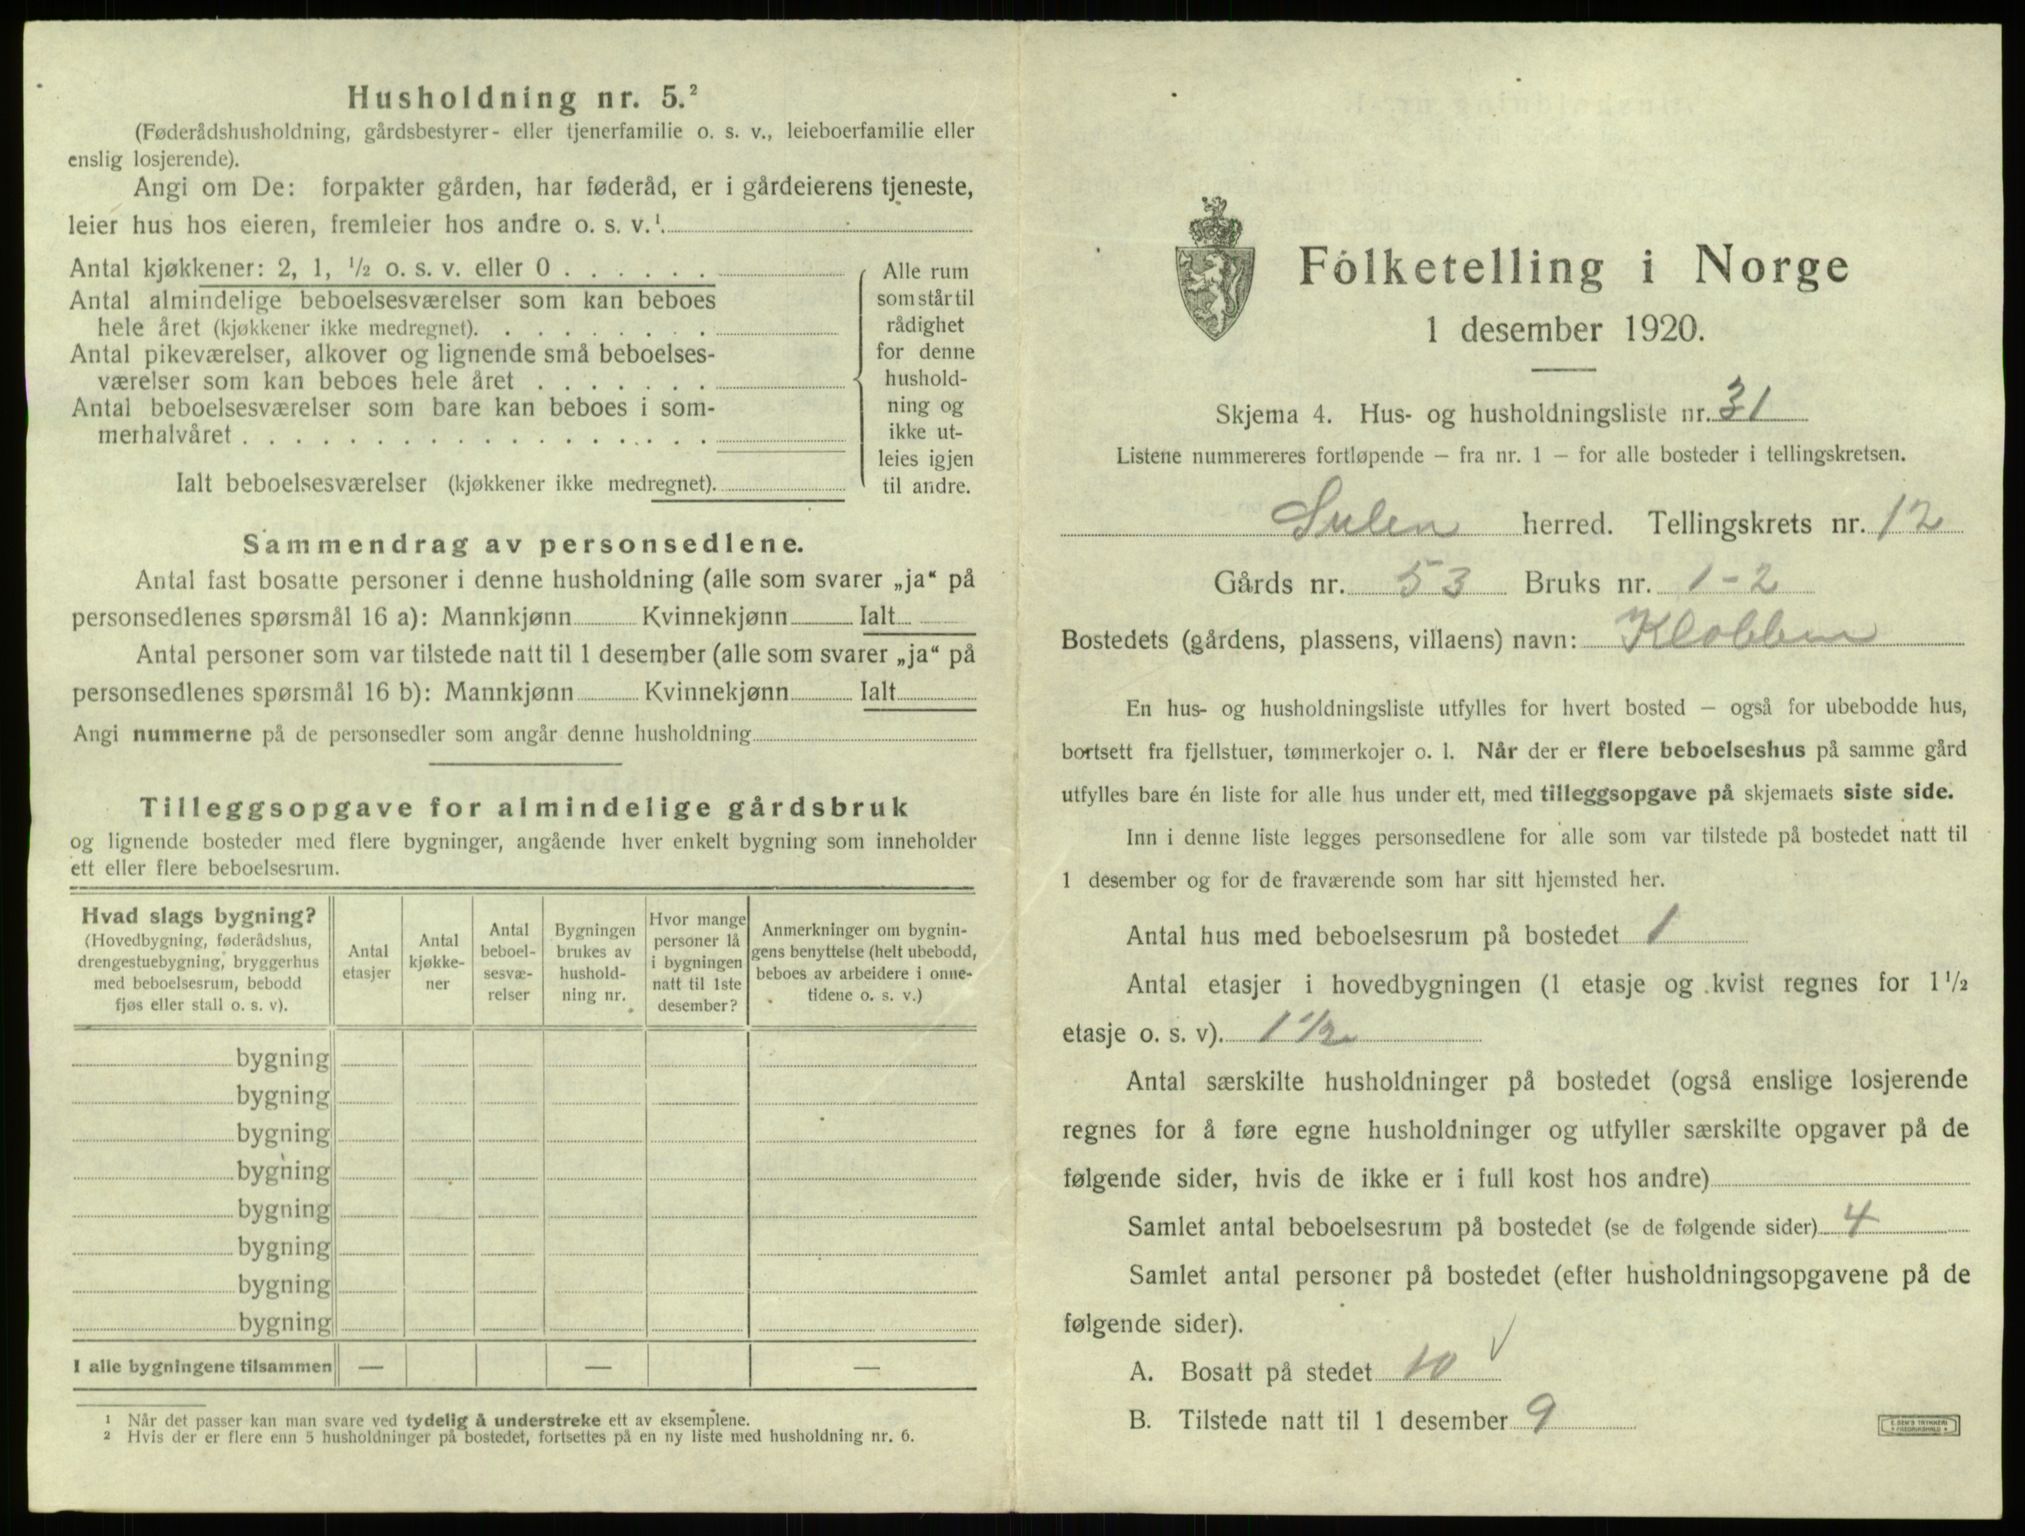 Husholdning nr. 5.²
(Føderådshusholdning, gårdsbestyrer- eller tjenerfamilie o. s. v., leieboerfamilie eller
enslig losjerende).
Angi om De: forpakter gården, har føderåd, er i gårdeierens tjeneste,
leier hus hos eieren, fremleier hos andre o. s. v.¹
Antal kjøkkener: 2, 1, ½ o. s. v. eller 0 . . . . . .
Antal almindelige beboelsesværelser som kan beboes
hele året (kjøkkener ikke medregnet). . . . . . . . .
Antal pikeværelser, alkover og lignende små beboelses-
værelser som kan beboes hele året . . . . . . .
Antal beboelsesværelser som bare kan beboes i som-
merhalvåret . . . . . . . . . . . . . . . . . .
Ialt beboelsesværelser (kjøkkener ikke medregnet).
Alle rum
som står til
rådighet
for denne
hushold-
ning og
ikke ut-
leies igjen
til andre.
Sammendrag av personsedlene.
Antal fast bosatte personer i denne husholdning (alle som svarer „ja“ på
personsedlenes spørsmål 16 a): Mannkjønn Kvinnekjønn Ialt
Antal personer som var tilstede natt til 1 desember (alle som svarer „ja“ på
personsedlenes spørsmål 16 b): Mannkjønn Kvinnekjønn Ialt
Angi nummerne på de personsedler som angår denne husholdning
Tilleggsopgave for almindelige gårdsbruk
og lignende bosteder med flere bygninger, angående hver enkelt bygning som inneholder
ett eller flere beboelsesrum.
Hvad slags bygning?
(Hovedbygning, føderådshus,
drengestuebygning, bryggerhus
med beboelsesrum, bebodd
fjøs eller stall o. s. v).
Antal
etasjer
Antal
kjøkke-
ner
Antal
beboel-
sesvæ-
relser
Bygningen
brukes av
hushold-
ning nr.
Hvor mange
personer lå
i bygningen
natt til 1ste
desember?
Anmerkninger om bygnin-
gens benyttelse (helt ubebodd,
beboes av arbeidere i onne-
tidene o. s. v.)
bygning
bygning
bygning
bygning
bygning
bygning
bygning
bygning
I alle bygningene tilsammen — — —
¹ Når det passer kan man svare ved tydelig å understreke ett av eksemplene.
² Hvis der er flere enn 5 husholdninger på bostedet, fortsettes på en ny liste med husholdning nr. 6.
Folketelling i Norge
1 desember 1920.
Skjema 4. Hus- og husholdningsliste nr. 31
Listene nummereres fortløpende – fra nr. 1 – for alle bosteder i tellingskretsen.
Sulen herred. Tellingskrets nr. 12
Gårds nr. 53 Bruks nr. 1-2
Bostedets (gårdens, plassens, villaens) navn: Klobben
En hus- og husholdningsliste utfylles for hvert bosted – også for ubebodde hus,
bortsett fra fjellstuer, tømmerkojer o. l. Når der er flere beboelseshus på samme gård
utfylles bare én liste for alle hus under ett, med tilleggsopgave på skjemaets siste side.
Inn i denne liste legges personsedlene for alle som var tilstede på bostedet natt til
1 desember og for de fraværende som har sitt hjemsted her.
Antal hus med beboelsesrum på bostedet 1
Antal etasjer i hovedbygningen (1 etasje og kvist regnes for 1½
etasje o. s. v). 1½
Antal særskilte husholdninger på bostedet (også enslige losjerende
regnes for å føre egne husholdninger og utfyller særskilte opgaver på de
følgende sider, hvis de ikke er i full kost hos andre)
Samlet antal beboelsesrum på bostedet (se de følgende sider) 4
Samlet antal personer på bostedet (efter husholdningsopgavene på de
følgende sider).
A. Bosatt på stedet 10 √
B. Tilstede natt til 1 desember 9